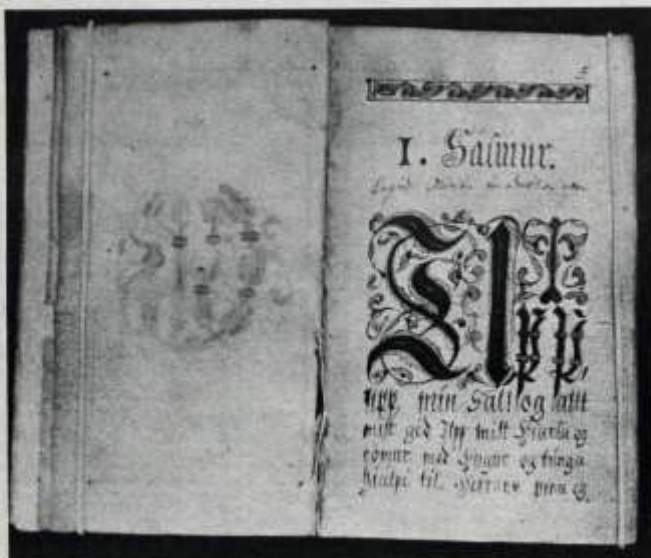 I. Sálmur.
Upp,
upp mín Sál og allt
mitt geð Upp mitt Hiarta og
rómur með Hugur og tunga
hiálpi til. Herrans pínu eg